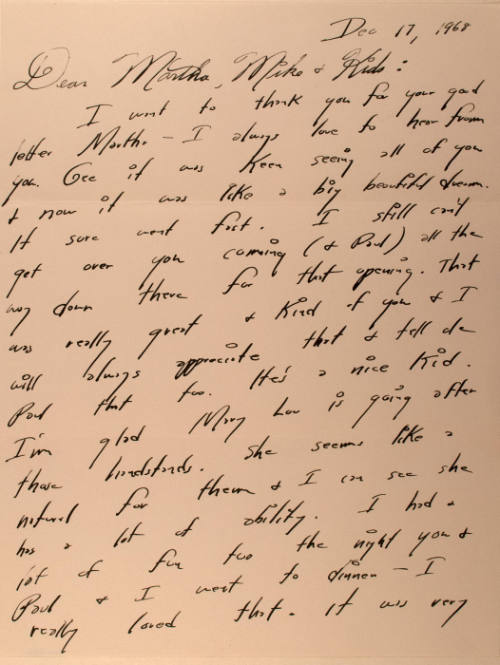 Dec 17, 1968
Dear Martha, Mike & Kids:
I want to thank you for your good
letter Martha – I always love to hear from
you. Gee it was Keen seeing all of you
& now it was like a big beautiful dream.
It sure went fast. I still can't
get over you coming (& Paul) all the
way down there for that opening. That
was really great & Kind of you & I
will always appreciate that & tell de
Paul that too. He's a nice Kid.
I'm glad Mary Lou is going after
those handstands. She seems like a
natural for them & I can see she
has a lot of ability. I had a
lot of fun too the night you &
Paul & I went to dinner – I
really loved that. it was very